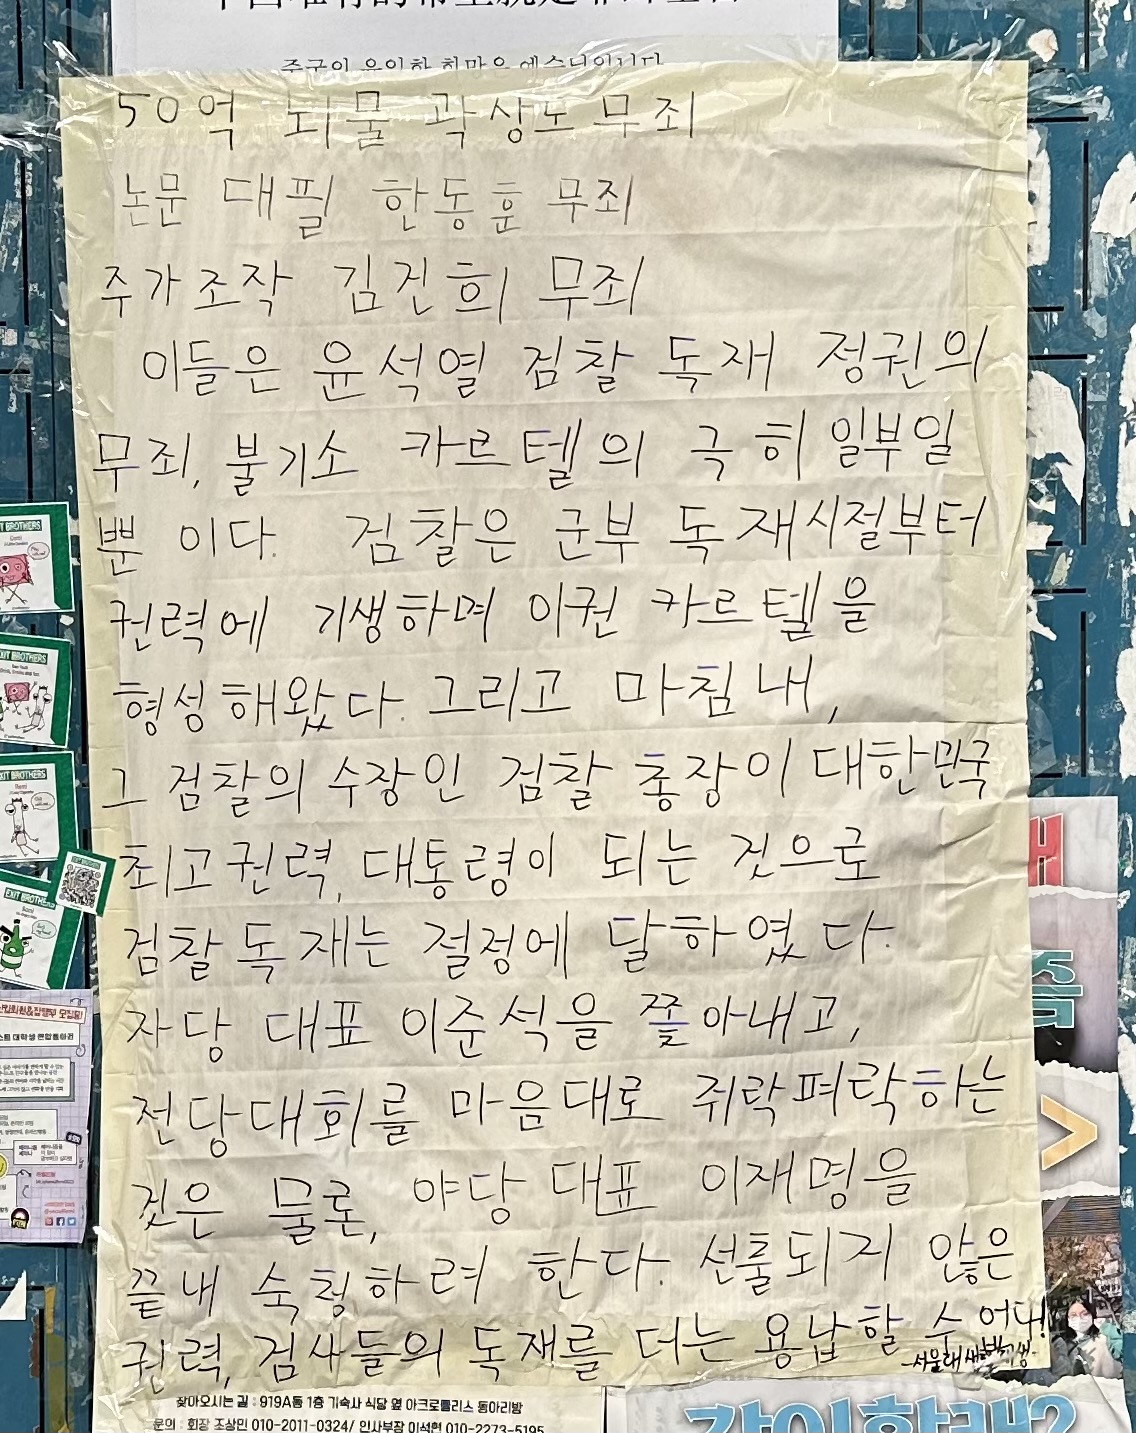 중국의 유일한 희망은 예수님입니다
50억 뇌물 곽상도 무죄
논문 대필 한동훈 무죄
주가조작 김건희 무죄
이들은 윤석열 검찰 독재 정권의
무죄, 불기소 카르텔의 극히 일부일
뿐 이다. 검찰은 군부 독재시절부터
권력에 기생하며 이권 카르텔을
형성해왔다. 그리고 마침내,
그 검찰의 수장인 검찰 총장이 대한민국
최고권력, 대통령이 되는 것으로
검찰독재는 절정에 달하였다.
자당 대표 이준석을 쫓아내고,
전당대회를 마음대로 쥐락펴락하는
것은 물론, 야당 대표 이재명을
끝내 숙청하려 한다. 선출되지 않은
권력, 검사들의 독재를 더는 용납할 수 없다!
-서울대 새벽기생-
찾아오시는 길 : 919A동 1층 기숙사 식당 옆 아크로폴리스 동아리방
문의 : 회장 조상민 010-2011-0324/ 인사부장 이석현 010-2273-5195
EXIT BROTHERS
EXIT BROTHERS
EXIT BROTHERS
EXIT BROTHERS